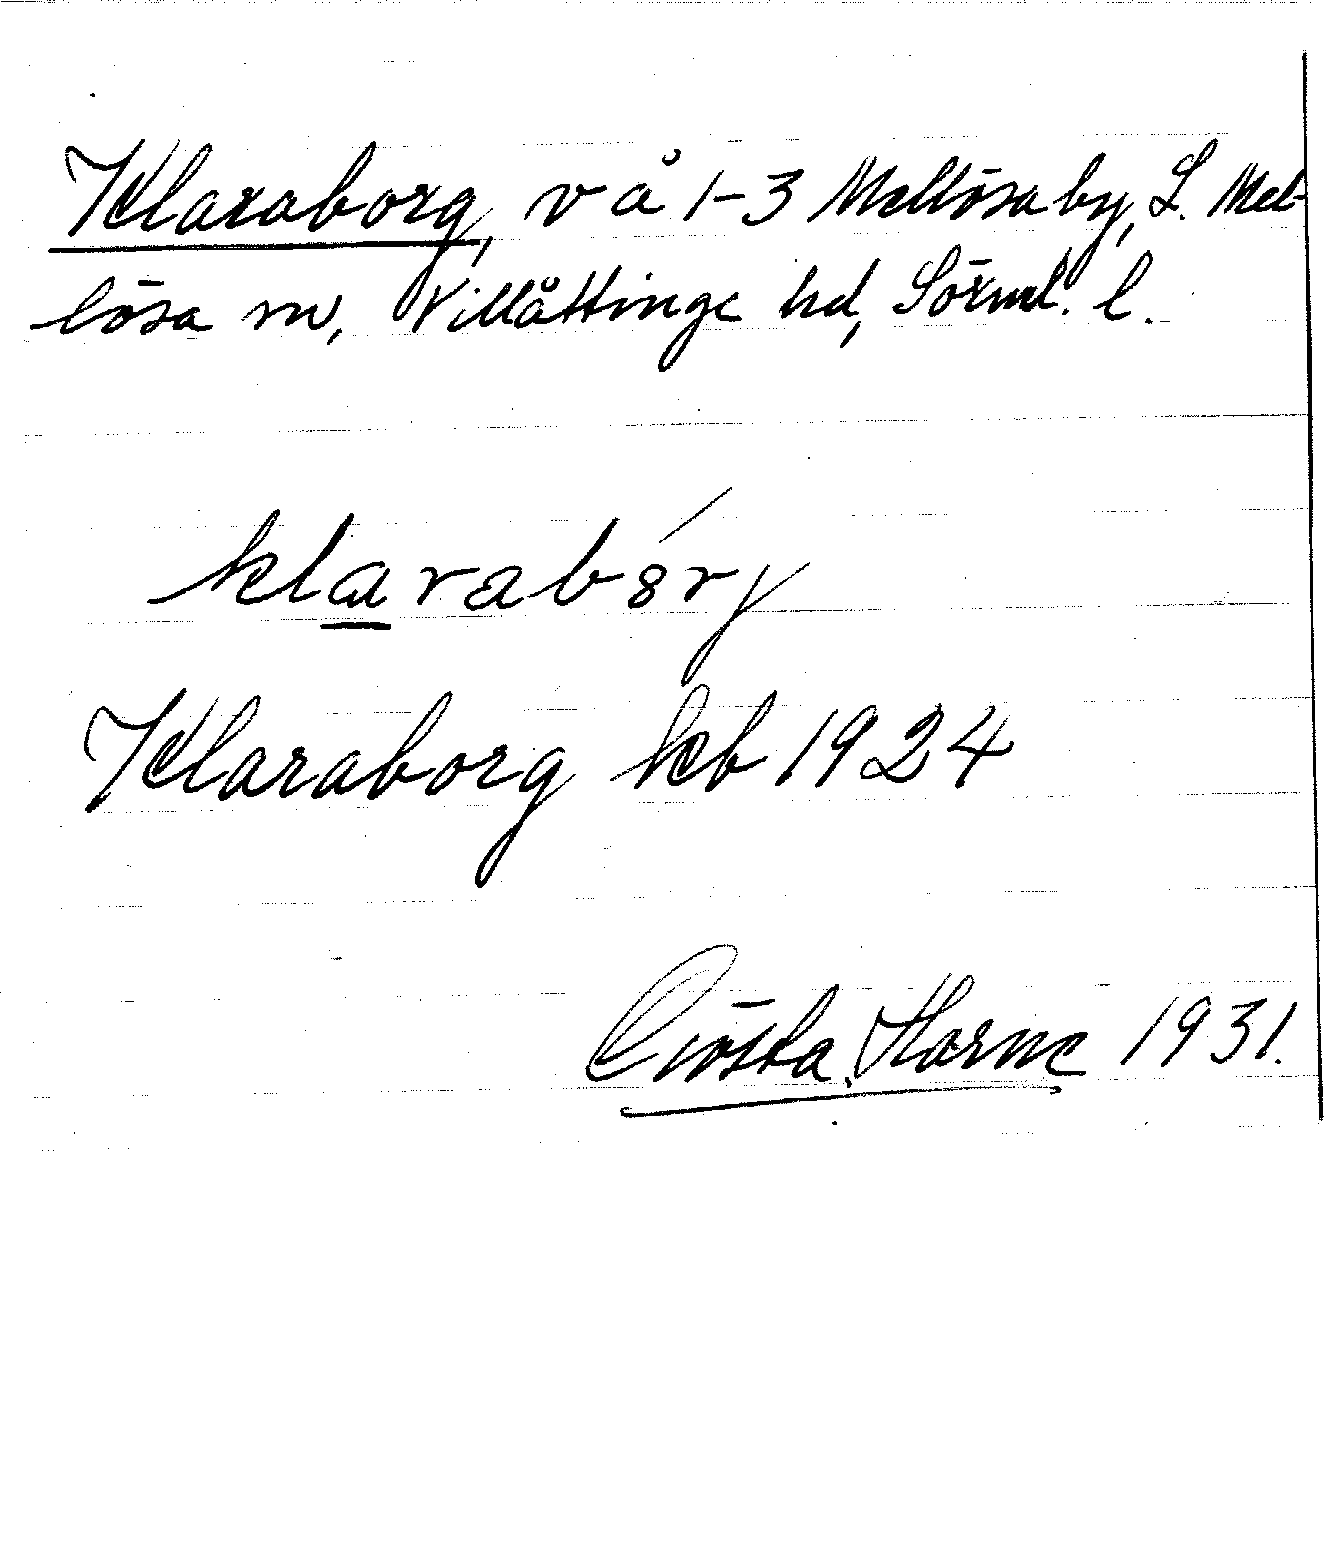 Klaraborg, v å 1-3 Mellösa by, L. Mel-
lösa sn, Villåttinge hd, Sörml. l.
klarabórg
Klaraborg kb 1924
Gösta Horne 1931.